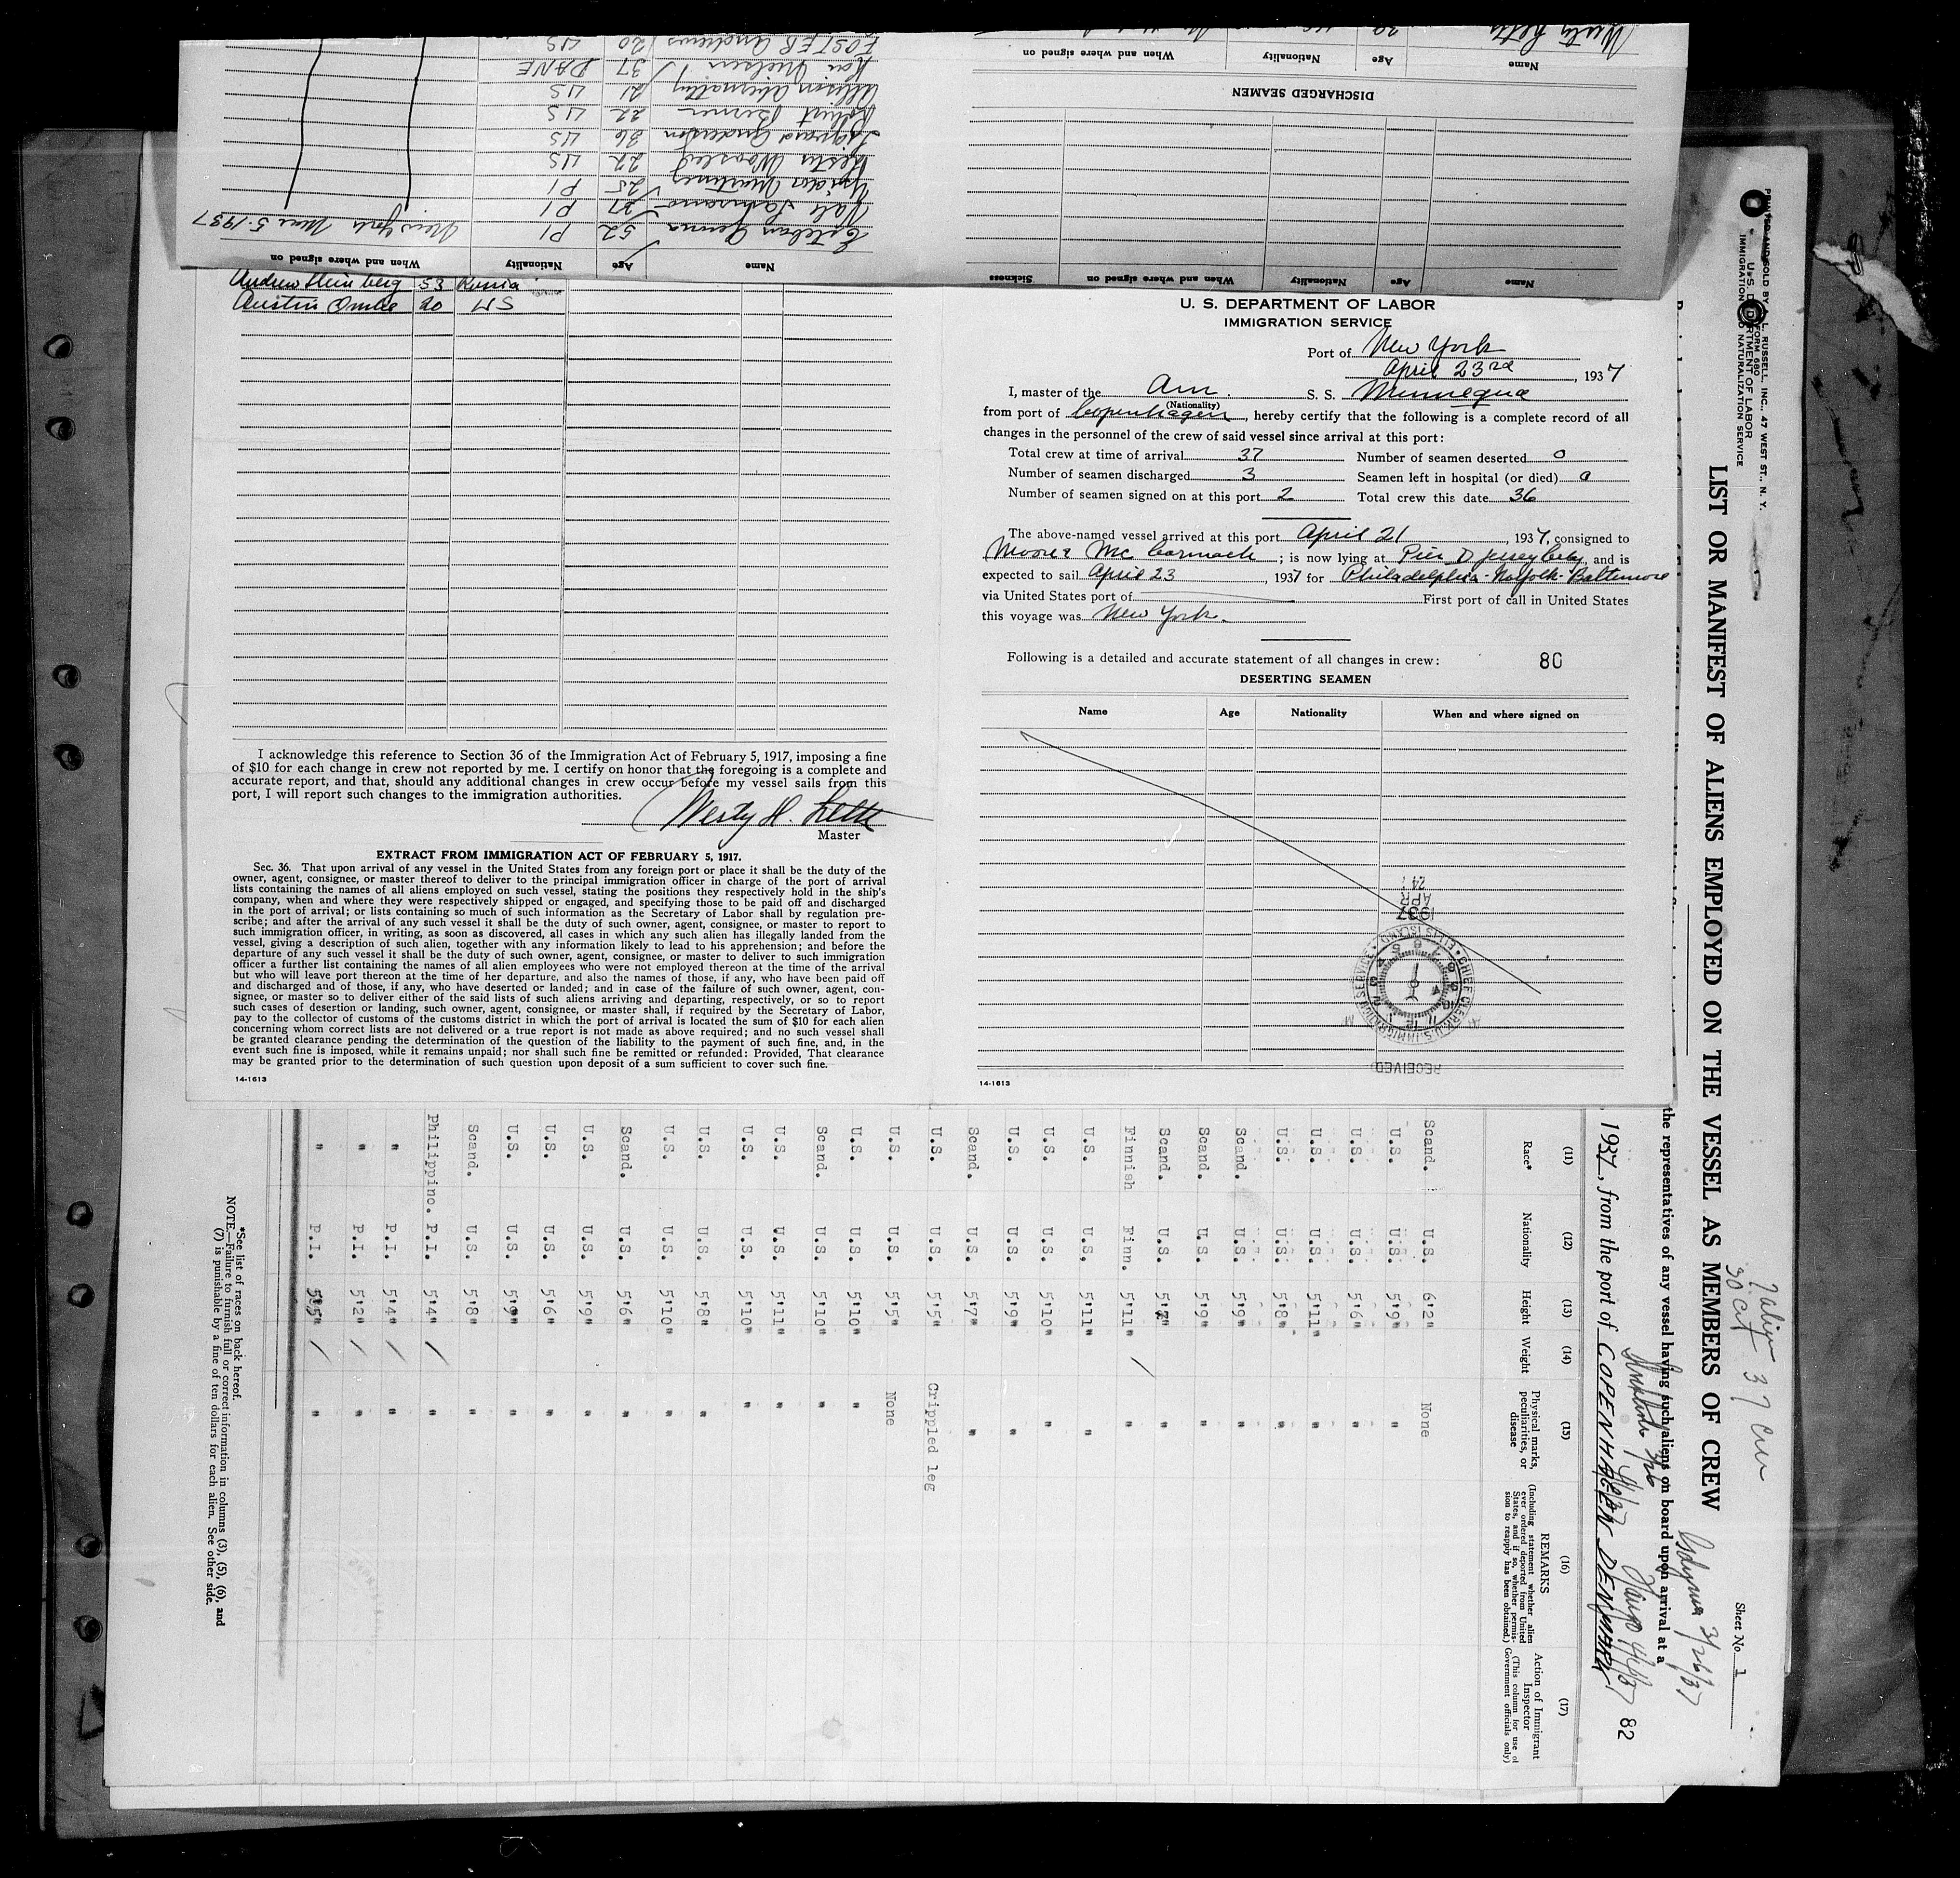 Name Age Nationality When and where signed on
Esteban 52 PI New York Mar 5-1937
27 PI
Martinez 25 PI
22 US
Anderson 36 US
Robert 22 US
21 US
Kai Nielsen 37 DANE
FOSTER Andrews 20 US
Name Age Nationality When and where signed on Sickness
DISCHARGED SEAMEN
Name Age Nationality When and where signed on
Andrew 53 Russia
Austin 20 US
I acknowledge this reference to Section 36 of the Immigration Act of February 5, 1917, imposing a fine
of $10 for each change in crew not reported by me. I certify on honor that the foregoing is a complete and
accurate report, and that, should any additional changes in crew occur before my vessel sails from this
port, I will report such changes to the immigration authorities.
Master
EXTRACT FROM IMMIGRATION ACT OF FEBRUARY 5, 1917.
Sec. 36. That upon arrival of any vessel in the United States from any foreign port or place it shall be the duty of the
owner, agent, consignee, or master thereof to deliver to the principal immigration officer in charge of the port of arrival
lists containing the names of all aliens employed on such vessel, stating the positions they respectively hold in the ship's
company, when and where they were respectively shipped or engaged, and specifying those to be paid off and discharged
in the port of arrival; or lists containing so much of such information as the Secretary of Labor shall by regulation pre-
scribe; and after the arrival of any such vessel it shall be the duty of such owner, agent, consignee, or master to report to
such immigration officer, in writing, as soon as discovered, all cases in which any such alien has illegally landed from the
vessel, giving a description of such alien, together with any information likely to lead to his apprehension; and before the
departure of any such vessel it shall be the duty of such owner, agent, consignee, or master to deliver to such immigration
officer a further list containing the names of all alien employees who were not employed thereon at the time of the arrival
but who will leave port thereon at the time of her departure, and also the names of those, if any, who have been paid off
and discharged and of those, if any, who have deserted or landed; and in case of the failure of such owner, agent, con-
signee, or master so to deliver either of the said lists of such aliens arriving and departing, respectively, or so to report
such cases of desertion or landing, such owner, agent, consignee, or master shall, if required by the Secretary of Labor,
pay to the collector of customs of the customs district in which the port of arrival is located the sum of $10 for each alien
concerning whom correct lists are not delivered or a true report is not made as above required; and no such vessel shall
be granted clearance pending the determination of the question of the liability to the payment of such fine, and, in the
event such fine is imposed, while it remains unpaid; nor shall such fine be remitted or refunded: Provided, That clearance
may be granted prior to the determination of such question upon deposit of a sum sufficient to cover such fine.
14-1613
U. S. DEPARTMENT OF LABOR
IMMIGRATION SERVICE
Port of New York
April 23rd, 1937
I, master of the Am. S. S. Minnequa
(Nationality)
from port of Copenhagen, hereby certify that the following is a complete record of all
changes in the personnel of the crew of said vessel since arrival at this port:
Total crew at time of arrival 37 Number of seamen deserted 0
Number of seamen discharged 3 Seamen left in hospital (or died) 0
Number of seamen signed on at this port 2 Total crew this date 36
The above-named vessel arrived at this port April 21, 1937, consigned to
Moore & McCormack; is now lying at Pier D Jersey City, and is
expected to sail April 23, 1937 for Philadelphia-Norfolk-Baltimore
via United States port of First port of call in United States
this voyage was New York.
Following is a detailed and accurate statement of all changes in crew: 80
DESERTING SEAMEN
Name Age Nationality When and where signed on
RECEIVED
CHIEF CLERK, U.S. IMMIGRATION SERVICE • ELLIS ISLAND
1937
APR
24
14-1613
FORM 680
U. S. DEPARTMENT OF LABOR
IMMIGRATION AND NATURALIZATION SERVICE
Sheet No. 1
LIST OR MANIFEST OF ALIENS EMPLOYED ON THE VESSEL AS MEMBERS OF CREW
Gdynia 3/26/37
the representatives of any vessel having such aliens on board upon arrival at a
1937, from the port of COPENHAGEN DENMARK
82
(11) (12) (13) (14) (15) (16) (17)
Race* Nationality Height Weight Physical marks, peculiarities, or disease REMARKS (Including statement whether alien ever ordered deported from United States, and if so, whether permission to reapply has been obtained.) Action of Immigrant Inspector (This column for use of Government officials only)
Scand. U.S. 6'2" None
U.S. U.S. 5'9" "
U.S. U.S. 5'6" "
U.S. U.S. 5'11" "
U.S. U.S. 5'8" "
Scand. U.S. 5'9" "
Scand. U.S. 5'9" "
Scand. U.S. 5'7" "
Finnish Finn. 5'11" "
U.S. U.S. 5'11" "
U.S. U.S. 5'10" "
U.S. U.S. 5'9" "
Scand. U.S. 5'7" "
U.S. U.S. 5'5" Crippled leg
U.S. 5'5" None
U.S. U.S. 5'10" "
Scand. U.S. 5'10" "
U.S. U.S. 5'11" "
U.S. U.S. 5'10" "
U.S. U.S. 5'8" "
U.S. U.S. 5'10" "
Scand. U.S. 5'6" "
U.S. U.S. 5'9" "
U.S. U.S. 5'6" "
U.S. U.S. 5'9" "
Scand. U.S. 5'8" "
Philippino. P.I. 5'4" "
" P.I. 5'4" "
" P.I. 5'2" "
" P.I. 5'5" "
*See list of races on back hereof.
NOTE.—Failure to furnish full or correct information in columns (3), (5), (6), and
(7) is punishable by a fine of ten dollars for each alien. See other side.